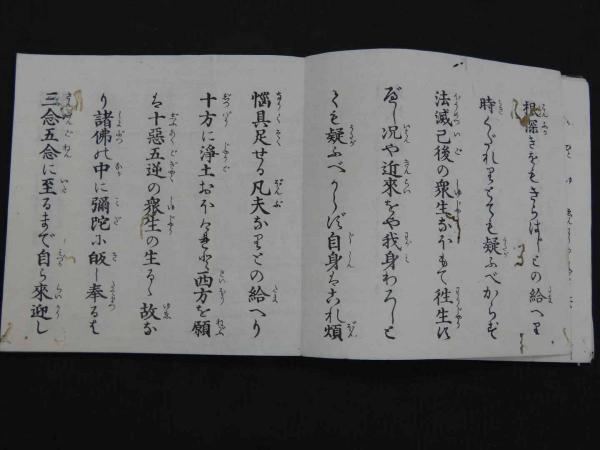 根深きをもきらはじとの給へり
時くだれりとても疑ふべからず
法滅已後の衆生なほもて徃生す
べし况や近來をや我身わろしと
ても疑ふべからず自身はこれ煩
惱具足せる凡夫なりとの給へり
十方に淨土おほけれど西方を願
は十惡五逆の衆生の生るゝ故な
り諸佛の中に彌陀に皈し奉るは
三念五念に至るまで自ら來迎し